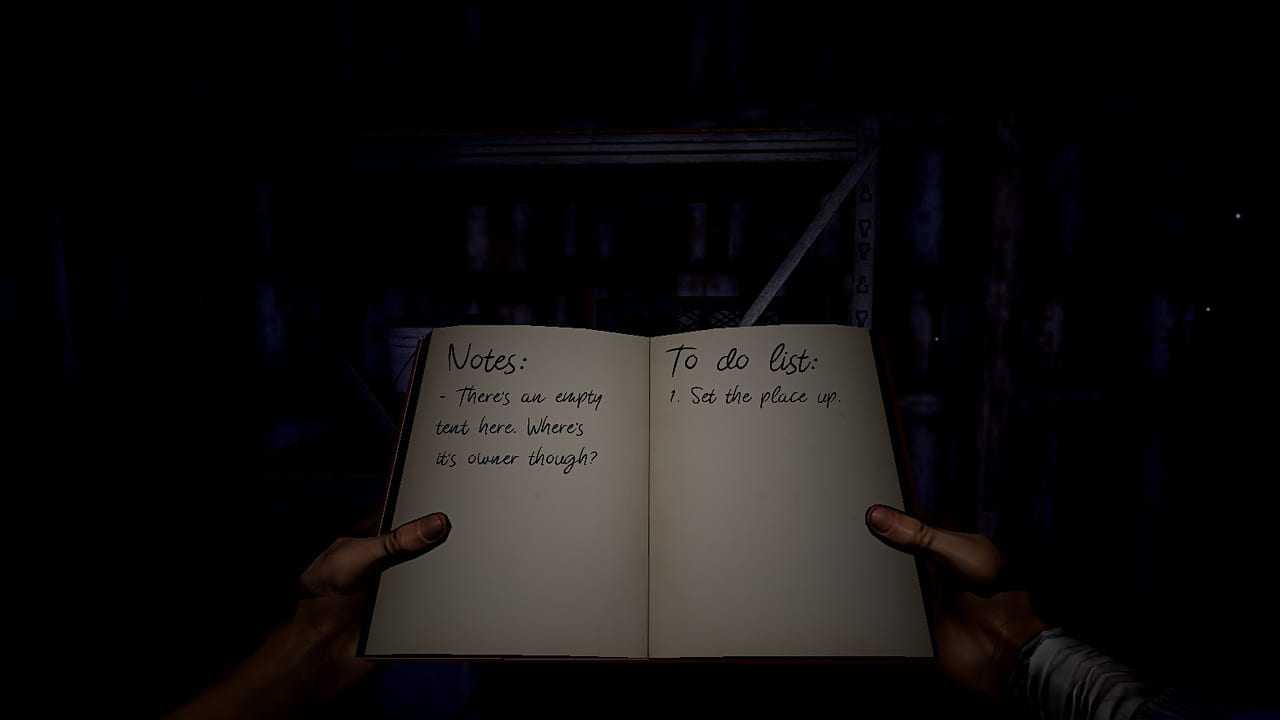 Notes:
- There's an empty
tent here. Where's
it's owner though?
To do list:
1. Set the place up.